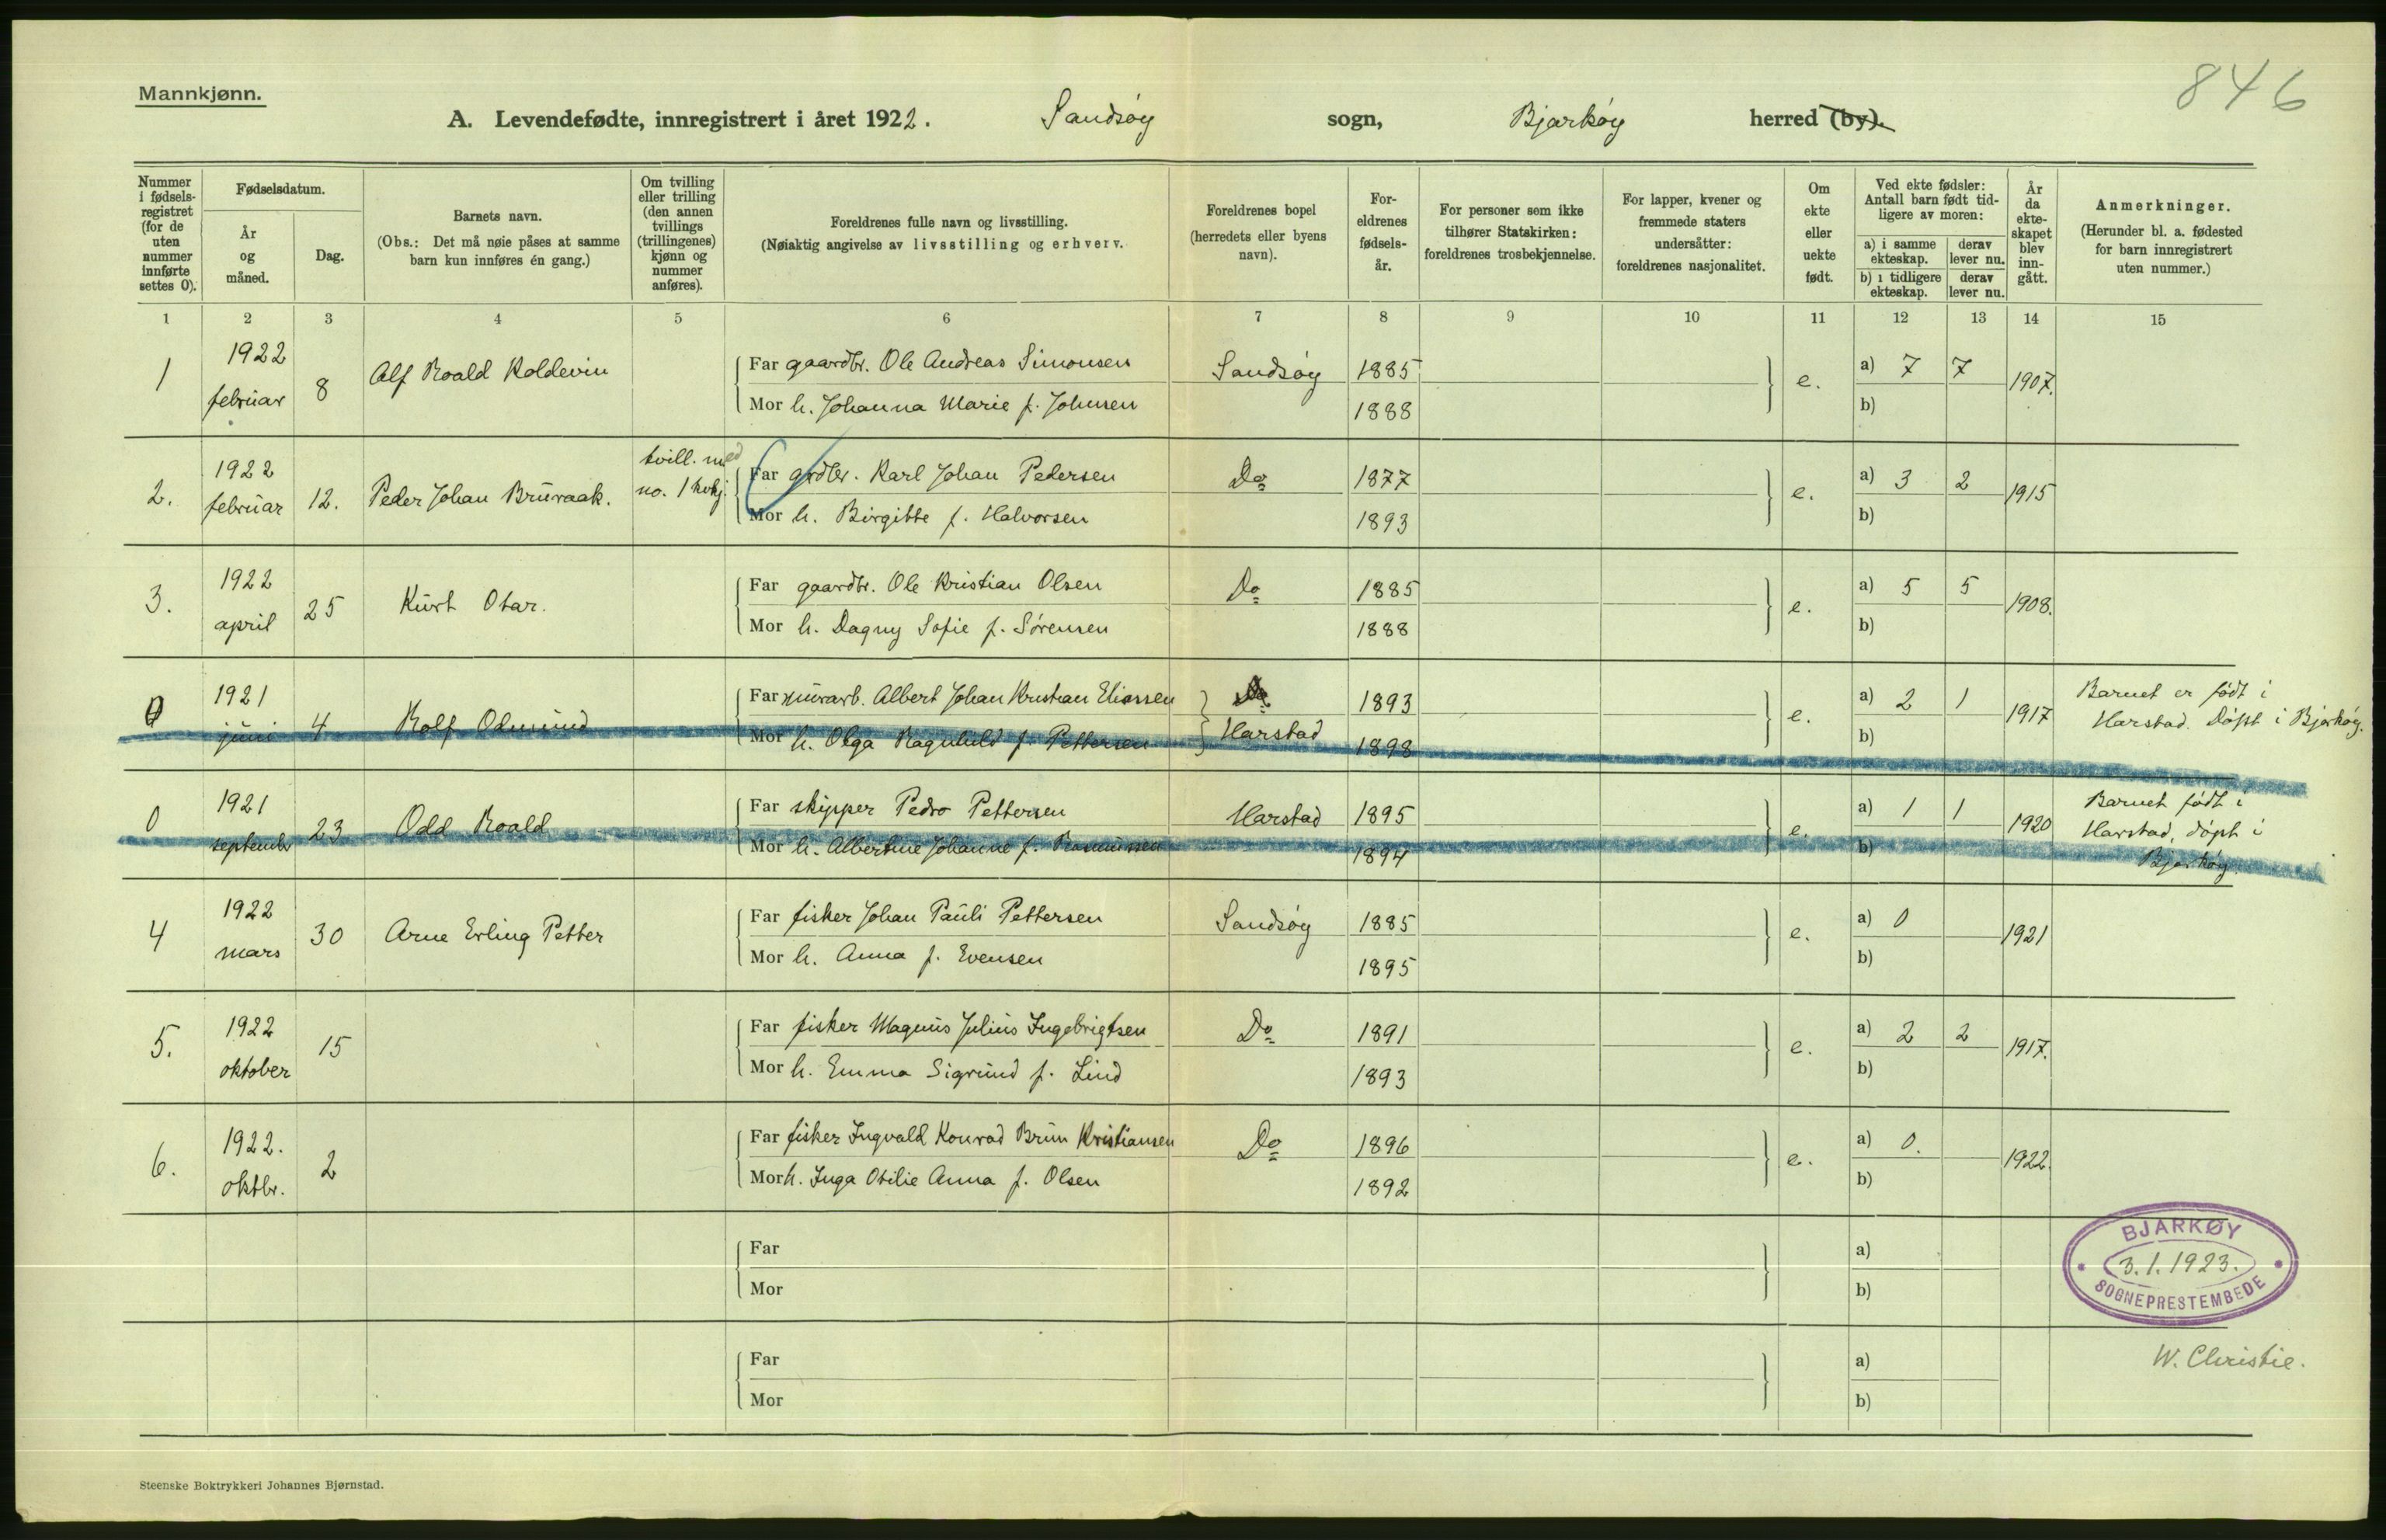 846
Mannkjønn.
A. Levendefødte, innregistrert i året 1922. Sandsøy sogn, Bjarkøy herred (by).
Nummer i fødsels- registret (for de uten nummer innførte settes 0).
Fødselsdatum.
År og måned.
Dag.
Barnets navn.
(Obs.: Det må nøie påses at samme barn kun innføres én gang.)
Om tvilling eller trilling (den annen tvillings (trillingenes) kjønn og nummer anføres).
Foreldrenes fulle navn og livsstilling.
(Nøiaktig angivelse av livsstilling og erhverv.
Foreldrenes bopel (herredets eller byens navn).
For- eldrenes fødsels- år.
For personer som ikke tilhører Statskirken: foreldrenes trosbekjennelse.
For lapper, kvener og fremmede staters undersåtter: foreldrenes nasjonalitet.
Om ekte eller uekte født.
Ved ekte fødsler: Antall barn født tid- ligere av moren:
a) i samme ekteskap.
derav lever nu.
b) i tidligere ekteskap.
derav lever nu.
År da ekte- skapet blev inn- gått.
Anmerkninger.
(Herunder bl. a. fødested for barn innregistrert uten nummer.)
1 2 3 4 5 6 7 8 9 10 11 12 13 14 15
1 1922 februar 8 Alf Roald Koldevin
Far gaardbr. Ole Andreas Simonsen Sandsøy 1885 e. a) 7 7 1907.
Mor h. Johanna Marie f. Johnsen 1888 b)
2. 1922 februar 12. Peder Johan Bruvaak. tvill. med no. 1 kvkj.
Far grdbr. Karl Johan Pedersen Do 1877 e. a) 3 2 1915
Mor h. Birgitte f. Halvorsen 1893 b)
3. 1922 april 25 Kurt Otar.
Far gaardbr. Ole Kristian Olsen Do 1885 e. a) 5 5 1908.
Mor h. Dagny Sofie f. Sørensen 1888 b)
0 1921 juni 4 Rolf Odmund
Far murarb. Albert Johan Kristian Eliassen Do 1893 e. a) 2 1 1917 Barnet er født i
Mor h. Olga Ragnhild f. Pettersen Harstad 1898 b) Harstad. Døpt i Bjarkøy.
0 1921 septembr 23 Odd Roald
Far skipper Pedro Pettersen Harstad 1895 e. a) 1 1 1920 Barnet født i
Harstad, døpt i
Mor h. Albertine Johanne f. Rasmussen 1894 b) Bjarkøy.
4 1922 mars 30 Arne Erling Petter
Far fisker Johan Pauli Pettersen Sandsøy 1885 e. a) 0 1921
Mor h. Anna f. Evensen 1895 b)
5. 1922 oktober 15
Far fisker Magnus Julius Ingebrigtsen Do 1891 e. a) 2 2 1917.
Mor h. Emma Sigrund f. Lind 1893 b)
6. 1922. oktbr. 2
Far fisker Ingvald Konrad Brun Kristiansen Do 1896 e. a) 0. 1922.
Mor h. Inga Otilie Anna f. Olsen 1892 b)
Far a)
Mor b)
BJARKØY
3.1.1923.
SOGNEPRESTEMBEDE
Far a)
W. Christie.
Mor b)
Steenske Boktrykkeri Johannes Bjørnstad.